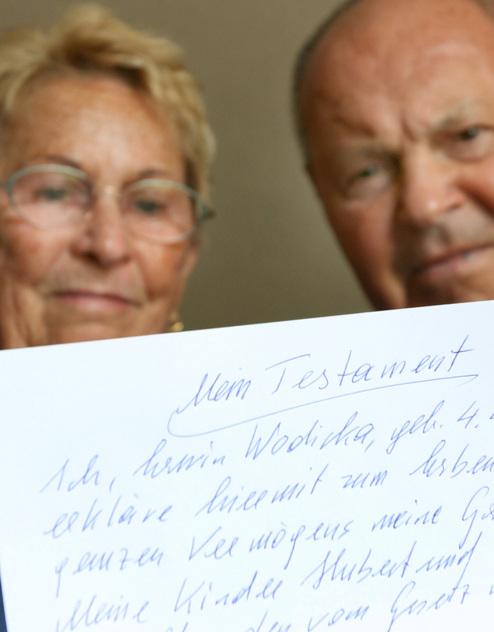 Mein Testament
Ich, Erwin Wodicka, geb. 4.
erkläre hiermit zum Erben
ganzen Vermögens meine
Meine Kinder Hubert und
den vom Gesetz